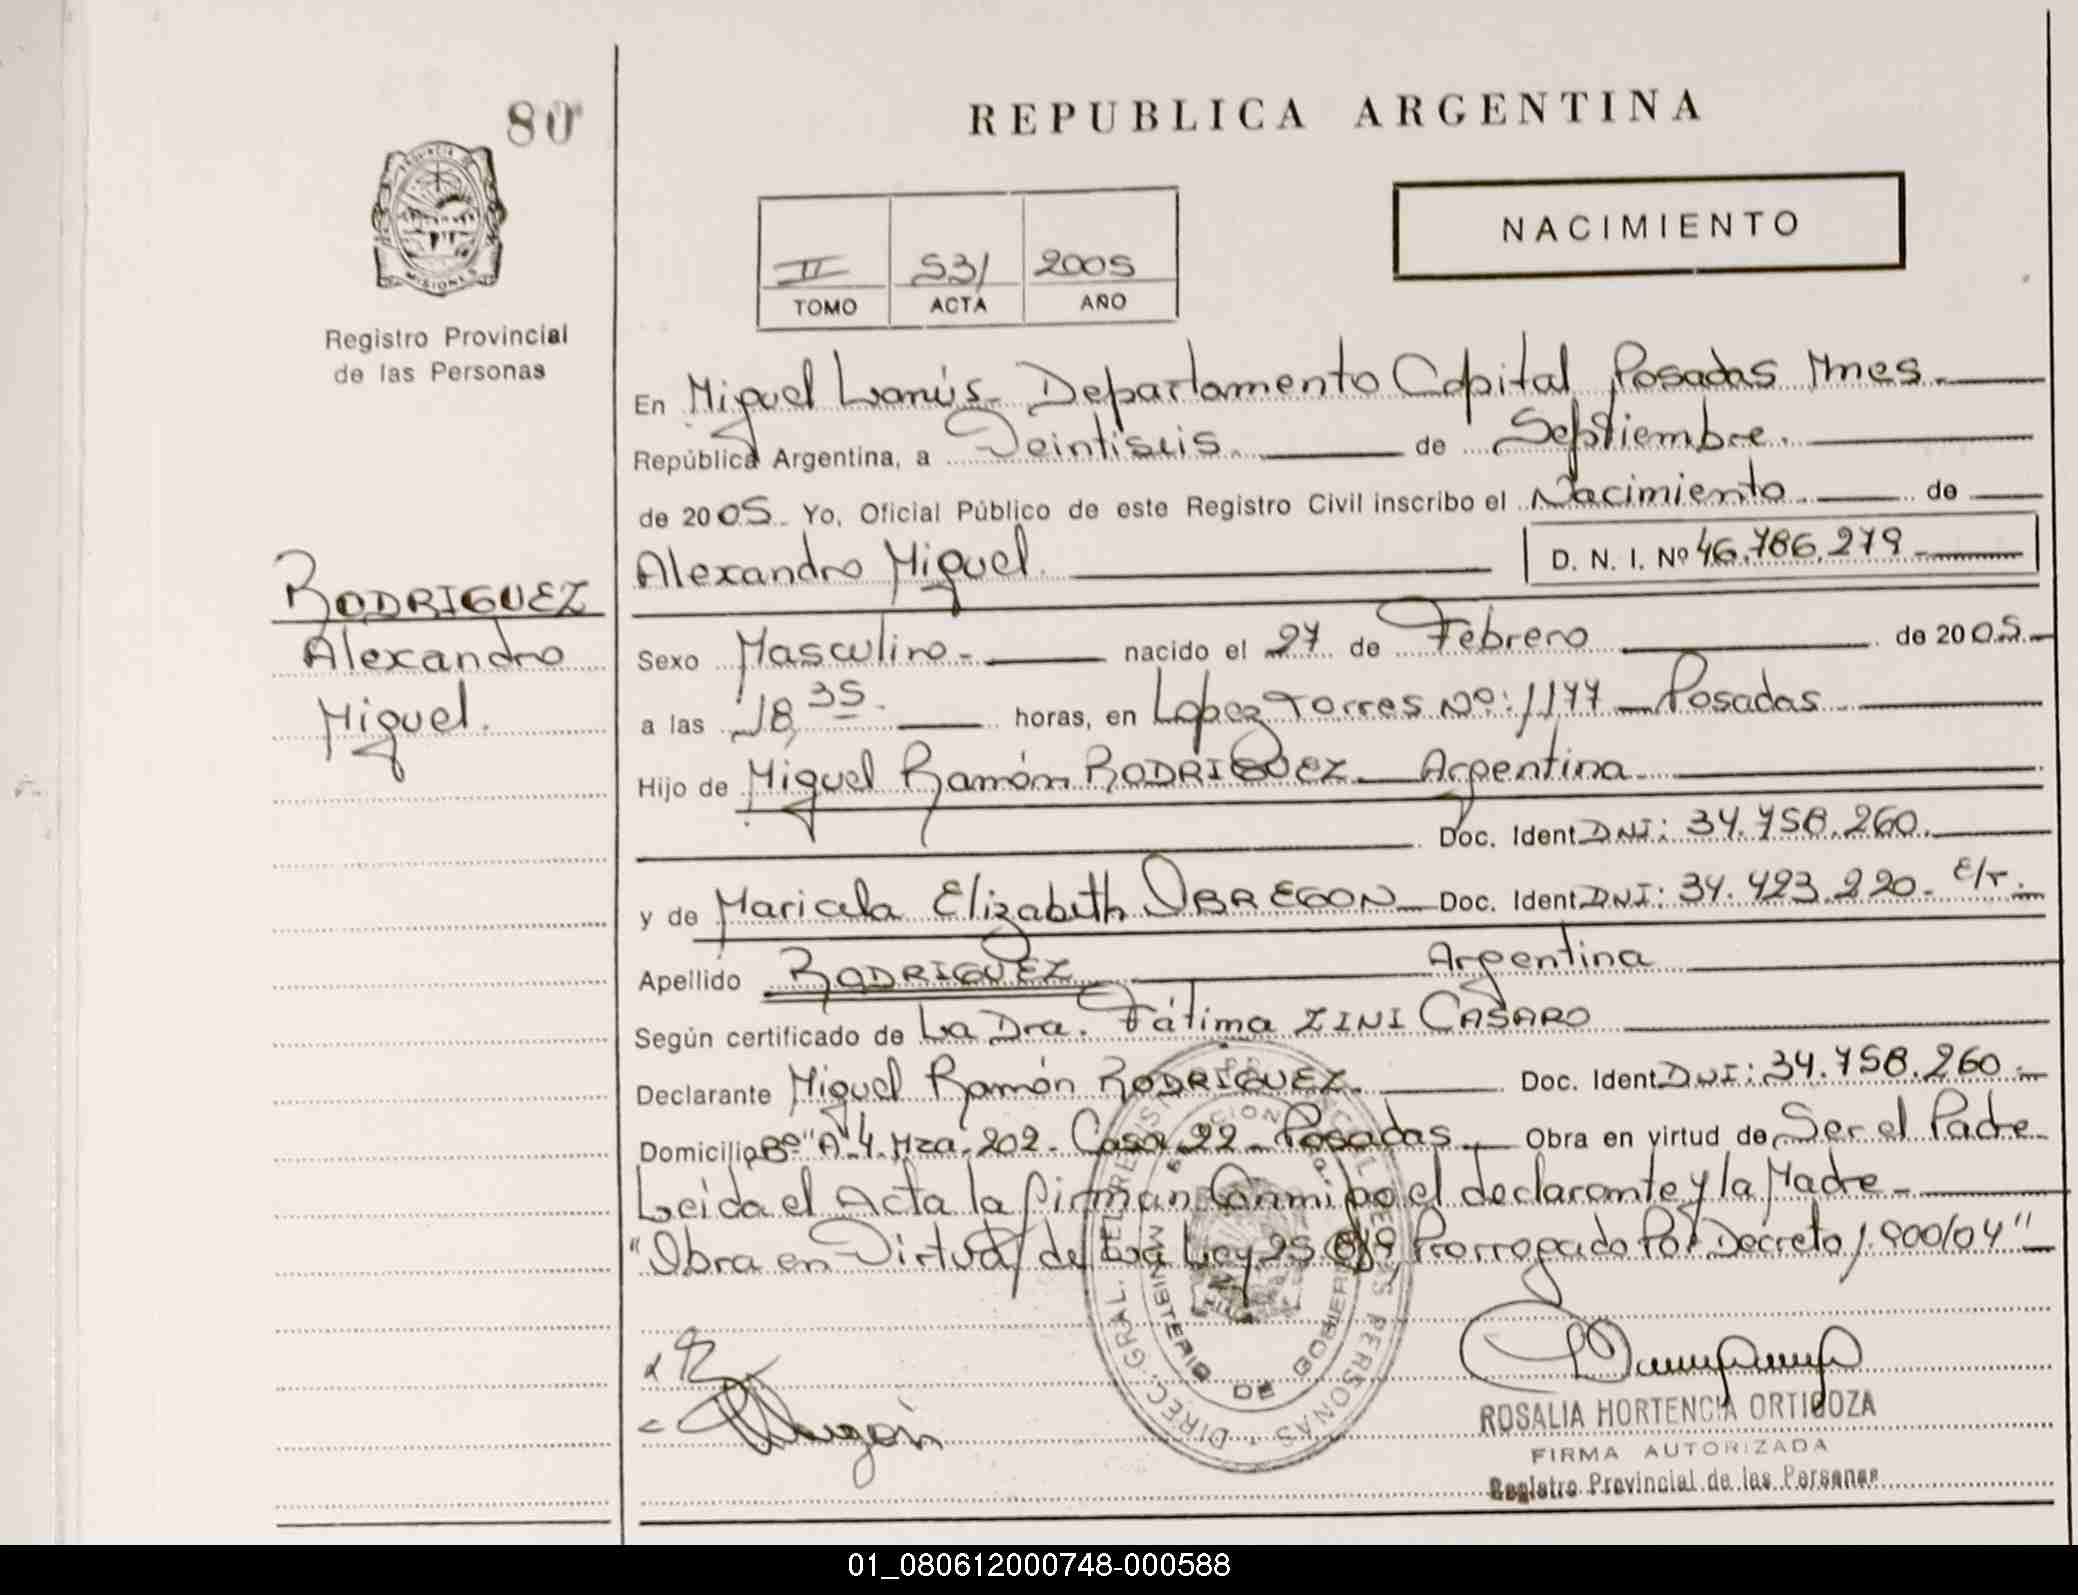 80
REPUBLICA ARGENTINA
NACIMIENTO
II 531 2005
TOMO ACTA AÑO
Registro Provincial
de las Personas
En Miguel Lanús - Departamento Capital, Posadas Mnes.
República Argentina, a Veintiseis de Septiembre.
de 2005. Yo, Oficial Público de este Registro Civil inscribo el Nacimiento de
Alexandro Miguel. D. N. I. Nº 46.786.279
RODRIGUEZ
Alexandro
Miguel.
Sexo Masculino - nacido el 27 de Febrero de 2005.
a las 18,35. horas, en Lopez Torres Nº: 1177 - Posadas
Hijo de Miguel Ramón RODRIGUEZ - Argentina
Doc. Ident DNI: 34.758.260.
y de Maricela Elizabeth OBREGON - Doc. Ident DNI: 34.423.220. - E/r.
Apellido RODRIGUEZ Argentina
Según certificado de La Dra. Fátima ZINI CASARO
Declarante Miguel Ramón RODRIGUEZ. Doc. Ident DNI: 34.758.260 -
Domicilio Bº "A" 4. Mza. 202 - Casa 22 - Posadas. Obra en virtud de Ser el Padre
Leida el Acta la firman Conmigo el declarante y la Madre -
"Obra en Virtud de La Ley 25.819 Prorrogado Por Decreto 1.900/04"
DIREC. GRAL. DEL REGISTRO PROVINCIAL DE LAS PERSONAS
MINISTERIO DE GOBIERNO
Obregón
ROSALIA HORTENCIA ORTIGOZA
FIRMA AUTORIZADA
Registro Provincial de las Personas
01_080612000748-000588